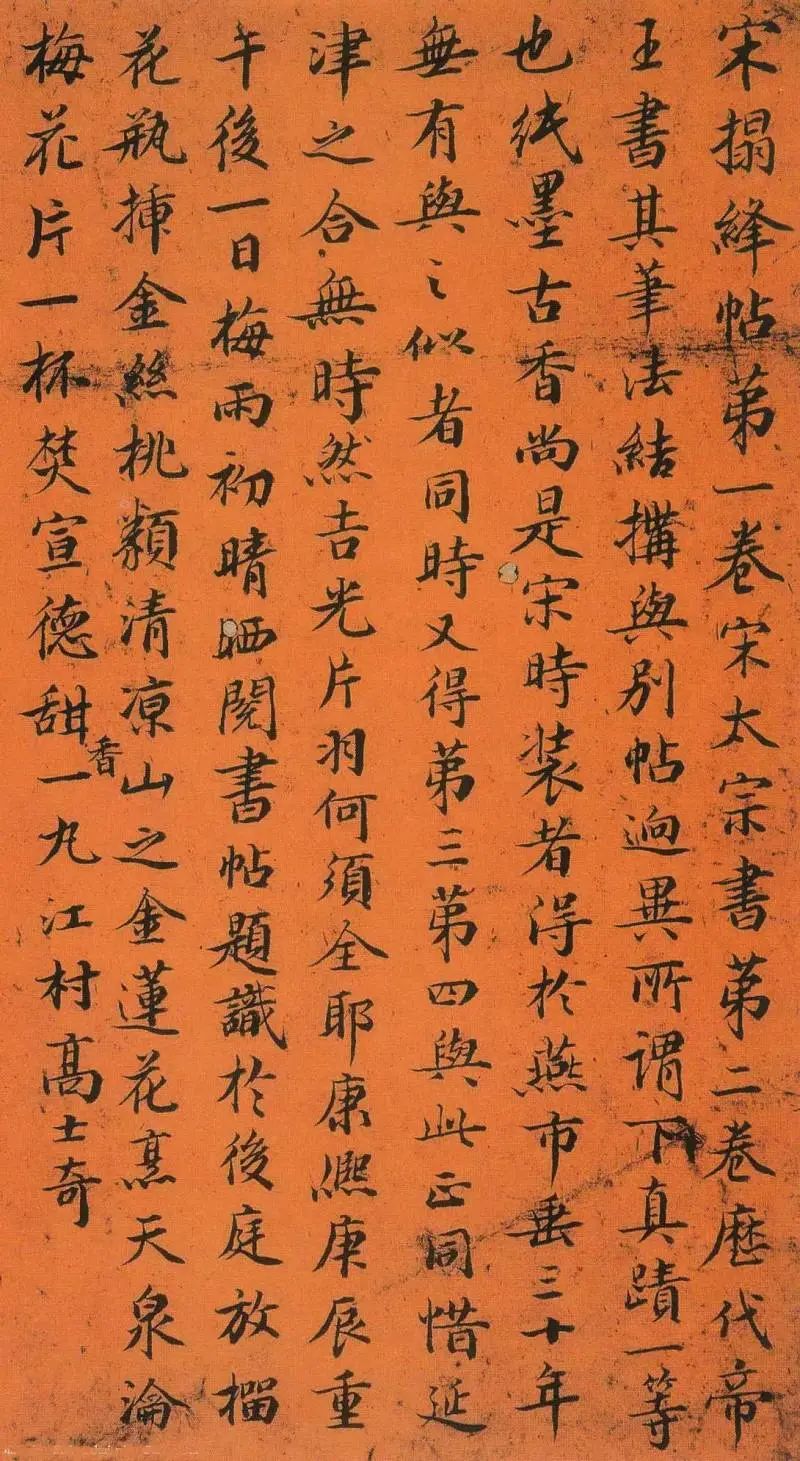 宋搨絳帖第一卷宋太宗書第二卷歷代帝
王書其筆法結搆與別帖逈異所謂下真蹟一等
也紙墨古香尚是宋時装者得於燕市垂三十年
無有與之似者同時又得第三第四與此正同惜延
津之合無時然吉光片羽何須全耶康熙庚辰重
午後一日梅雨初晴晒閱書帖題識於後庭放榴
花瓶揷金絲桃纇清凉山之金蓮花烹天泉瀹
梅花片一杯焚宣德甜香一九江村高士奇